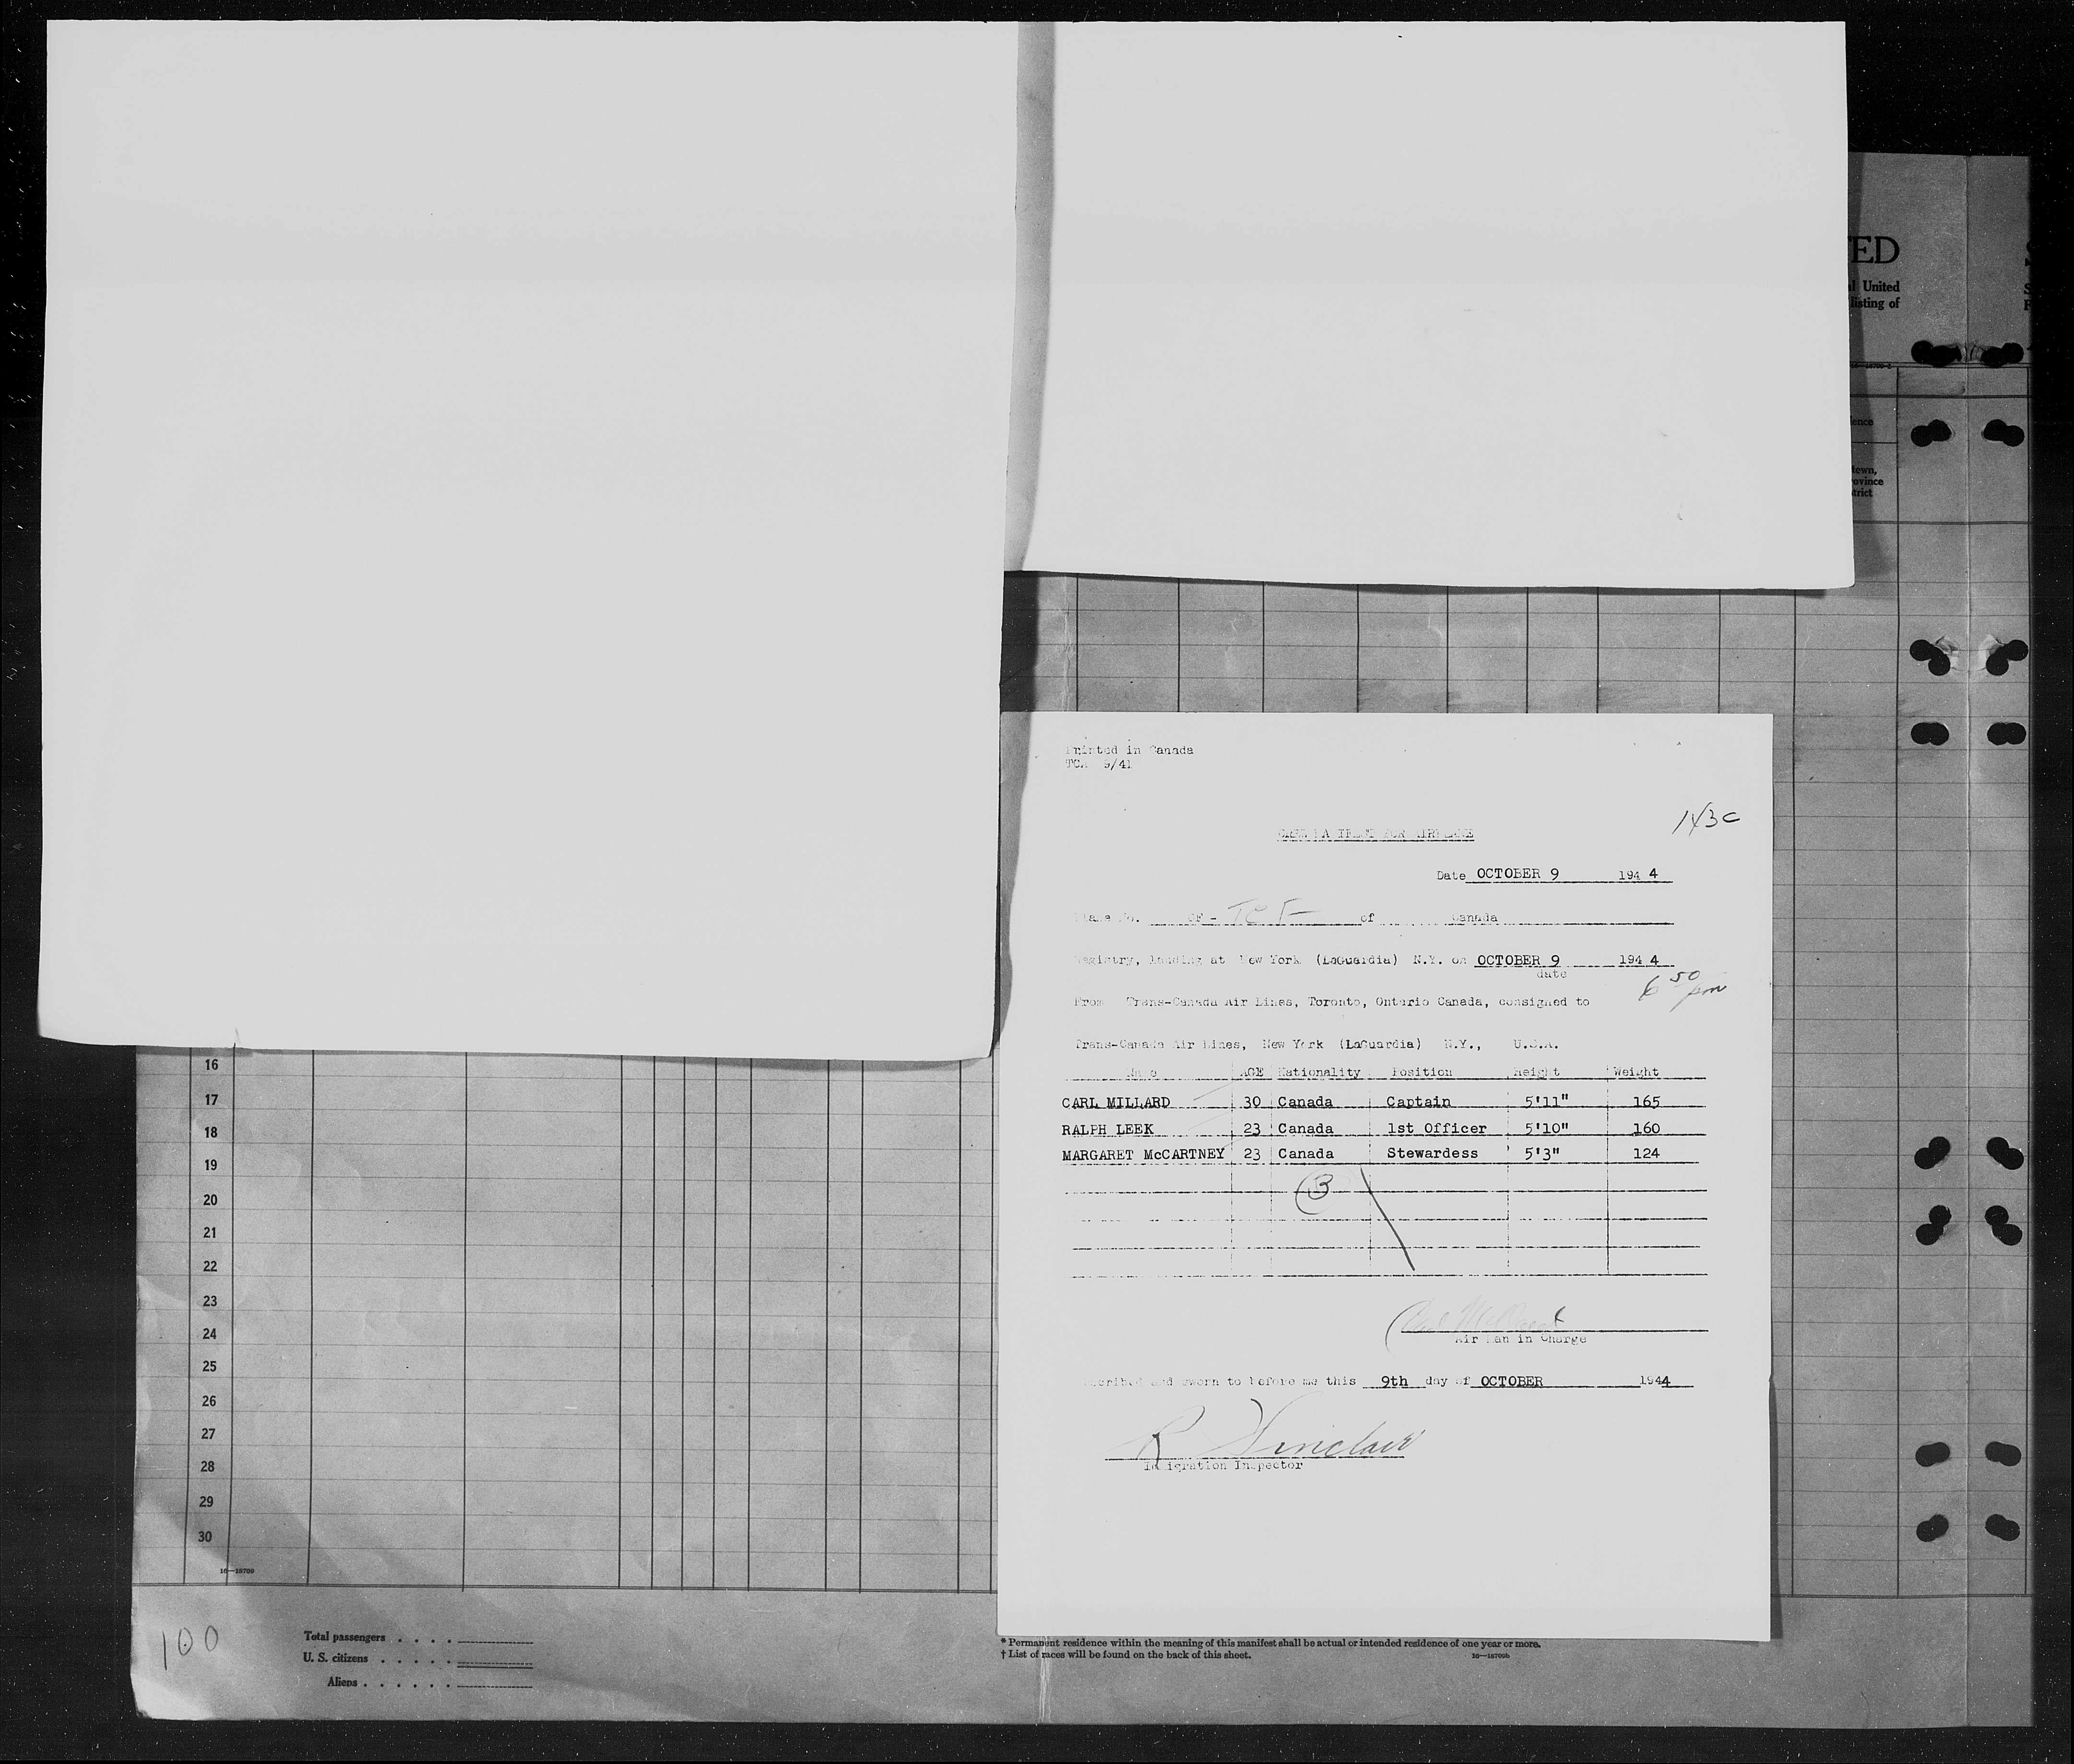 ED
al United
listing of
ence
town,
ovince
trict
Printed in Canada
TCA 9/41
FOR AIRPLANE
Date OCTOBER 9 194 4
Plane No. CF - TC of Canada
Registry, landing at New York (LaGuardia) N.Y. on OCTOBER 9 194 4
date
6 50 pm
From Trans-Canada Air Lines, Toronto, Ontario Canada, consigned to
Trans-Canada Air Lines, New York (LaGuardia) N.Y., U.S.A.
Name AGE Nationality Position Height Weight
CARL MILLARD 30 Canada Captain 5'11" 165
RALPH LEEK 23 Canada 1st Officer 5'10" 160
MARGARET McCARTNEY 23 Canada Stewardess 5'3" 124
3
Carl Millard
Air Man in Charge
scribed and sworn to before me this 9th day of OCTOBER 1944
R Sinclair
Immigration Inspector
16
17
18
19
20
21
22
23
24
25
26
27
28
29
30
16—18709
100
Total passengers . . . .
U. S. citizens . . . . .
Aliens . . . . . .
* Permanent residence within the meaning of this manifest shall be actual or intended residence of one year or more.
† List of races will be found on the back of this sheet. 16—18709b